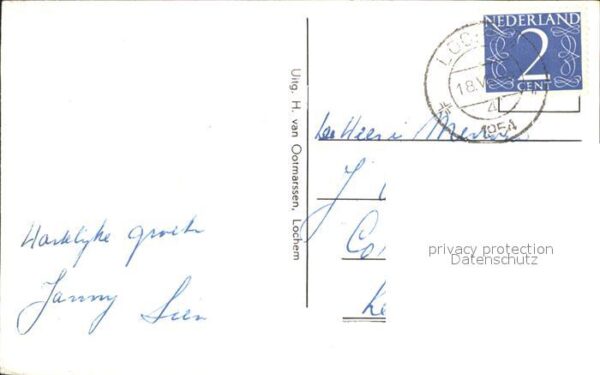 Hartelijke groeten
Janny Sien
Uitg. H. van Ootmarssen, Lochem
NEDERLAND
2
CENT
LOC
18.V
4
1954
J
Co
privacy protection
Datenschutz